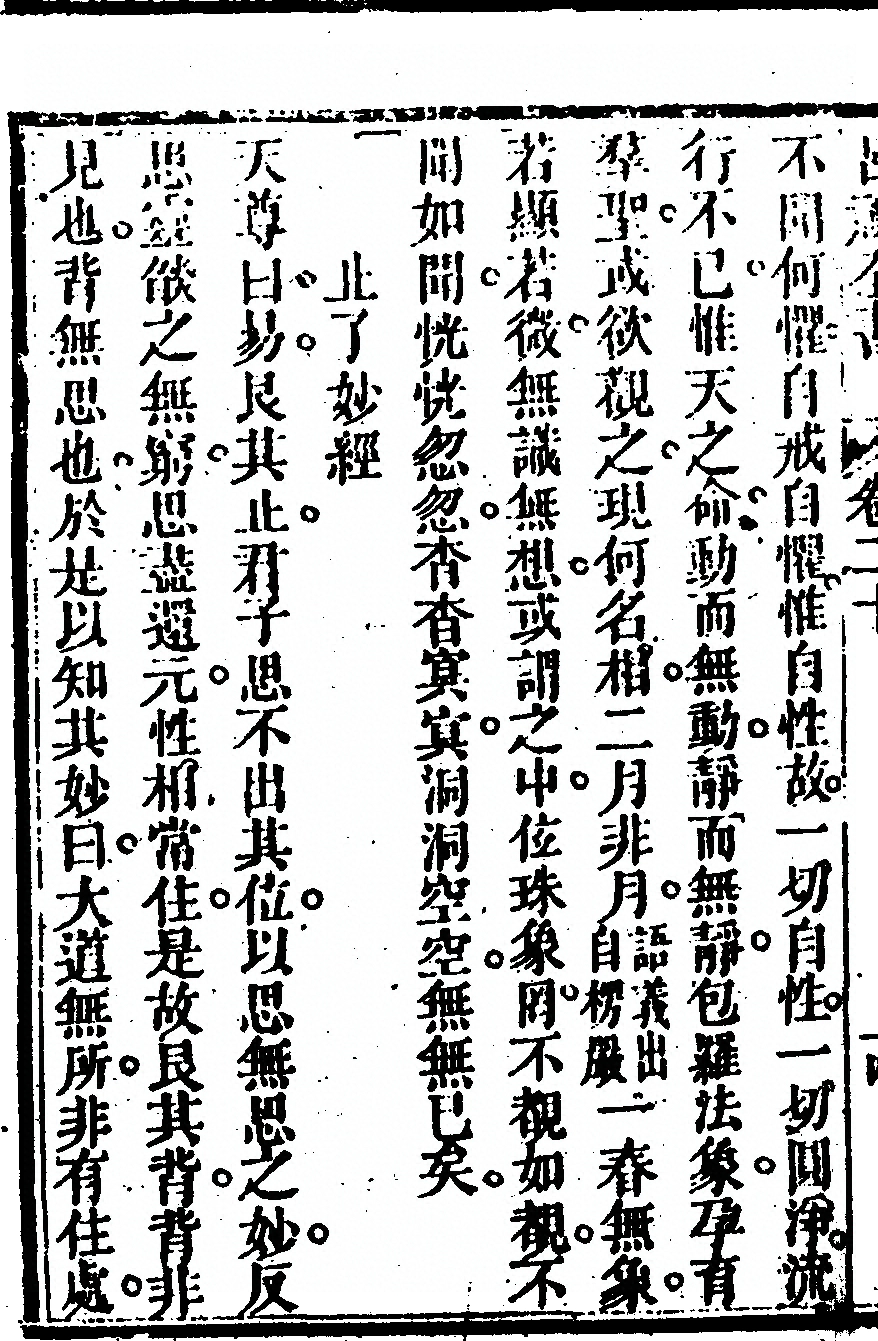 不聞何懼自戒自懼惟自性故一切自性一切圓淨流
行不已惟天之命動而無動靜而無靜包羅法象孕有
羣聖或欲觀之現何名相二月非月語義出自楞嚴一春無象
若顯若微無識無想或謂之中位珠象罔不覩如覩不
聞如聞恍恍忽忽杳杳冥冥洞洞空空無無已矣
止了妙經
天尊曰易艮其止君子思不出其位以思無思之妙反
思靈燄之無窮思盡還元性相常住是故艮其背背非
見也背無思也於是以知其妙曰大道無所非有住處